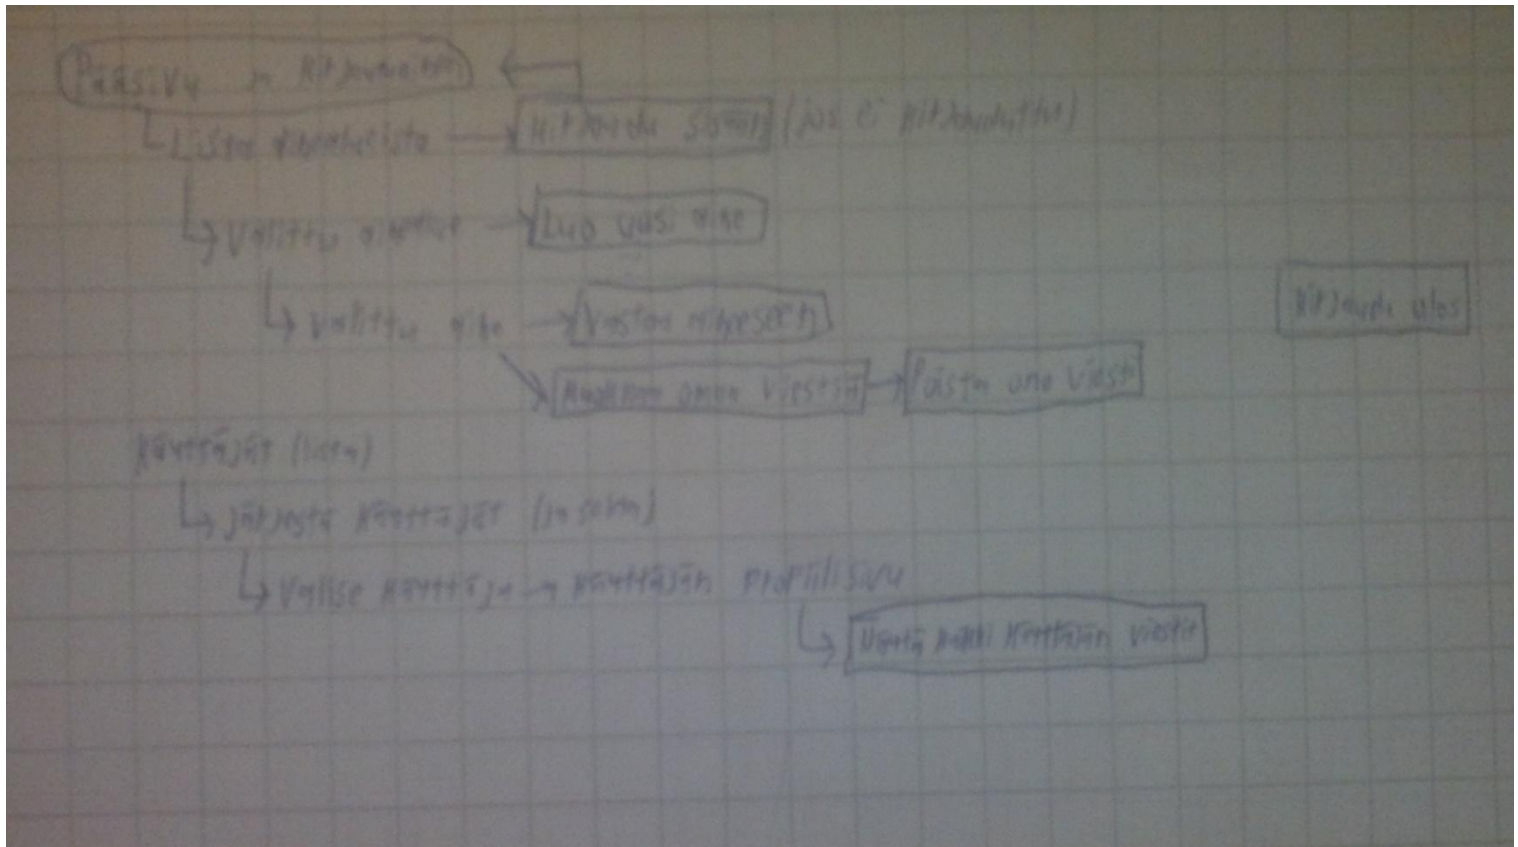 Pääsivu
Lista aihealueista Kirjaudu sisään (jos ei kirjauduttu)
Valittu aihealue Luo uusi aihe
Valittu aihe Vastaa aiheeseen
Kirjaudu ulos
Muokkaa omaa viestiä Poista oma viesti
Käyttäjät (lista)
Järjestä käyttäjät
Valitse käyttäjä käyttäjän profiilisivu
Näytä kaikki käyttäjän viestit